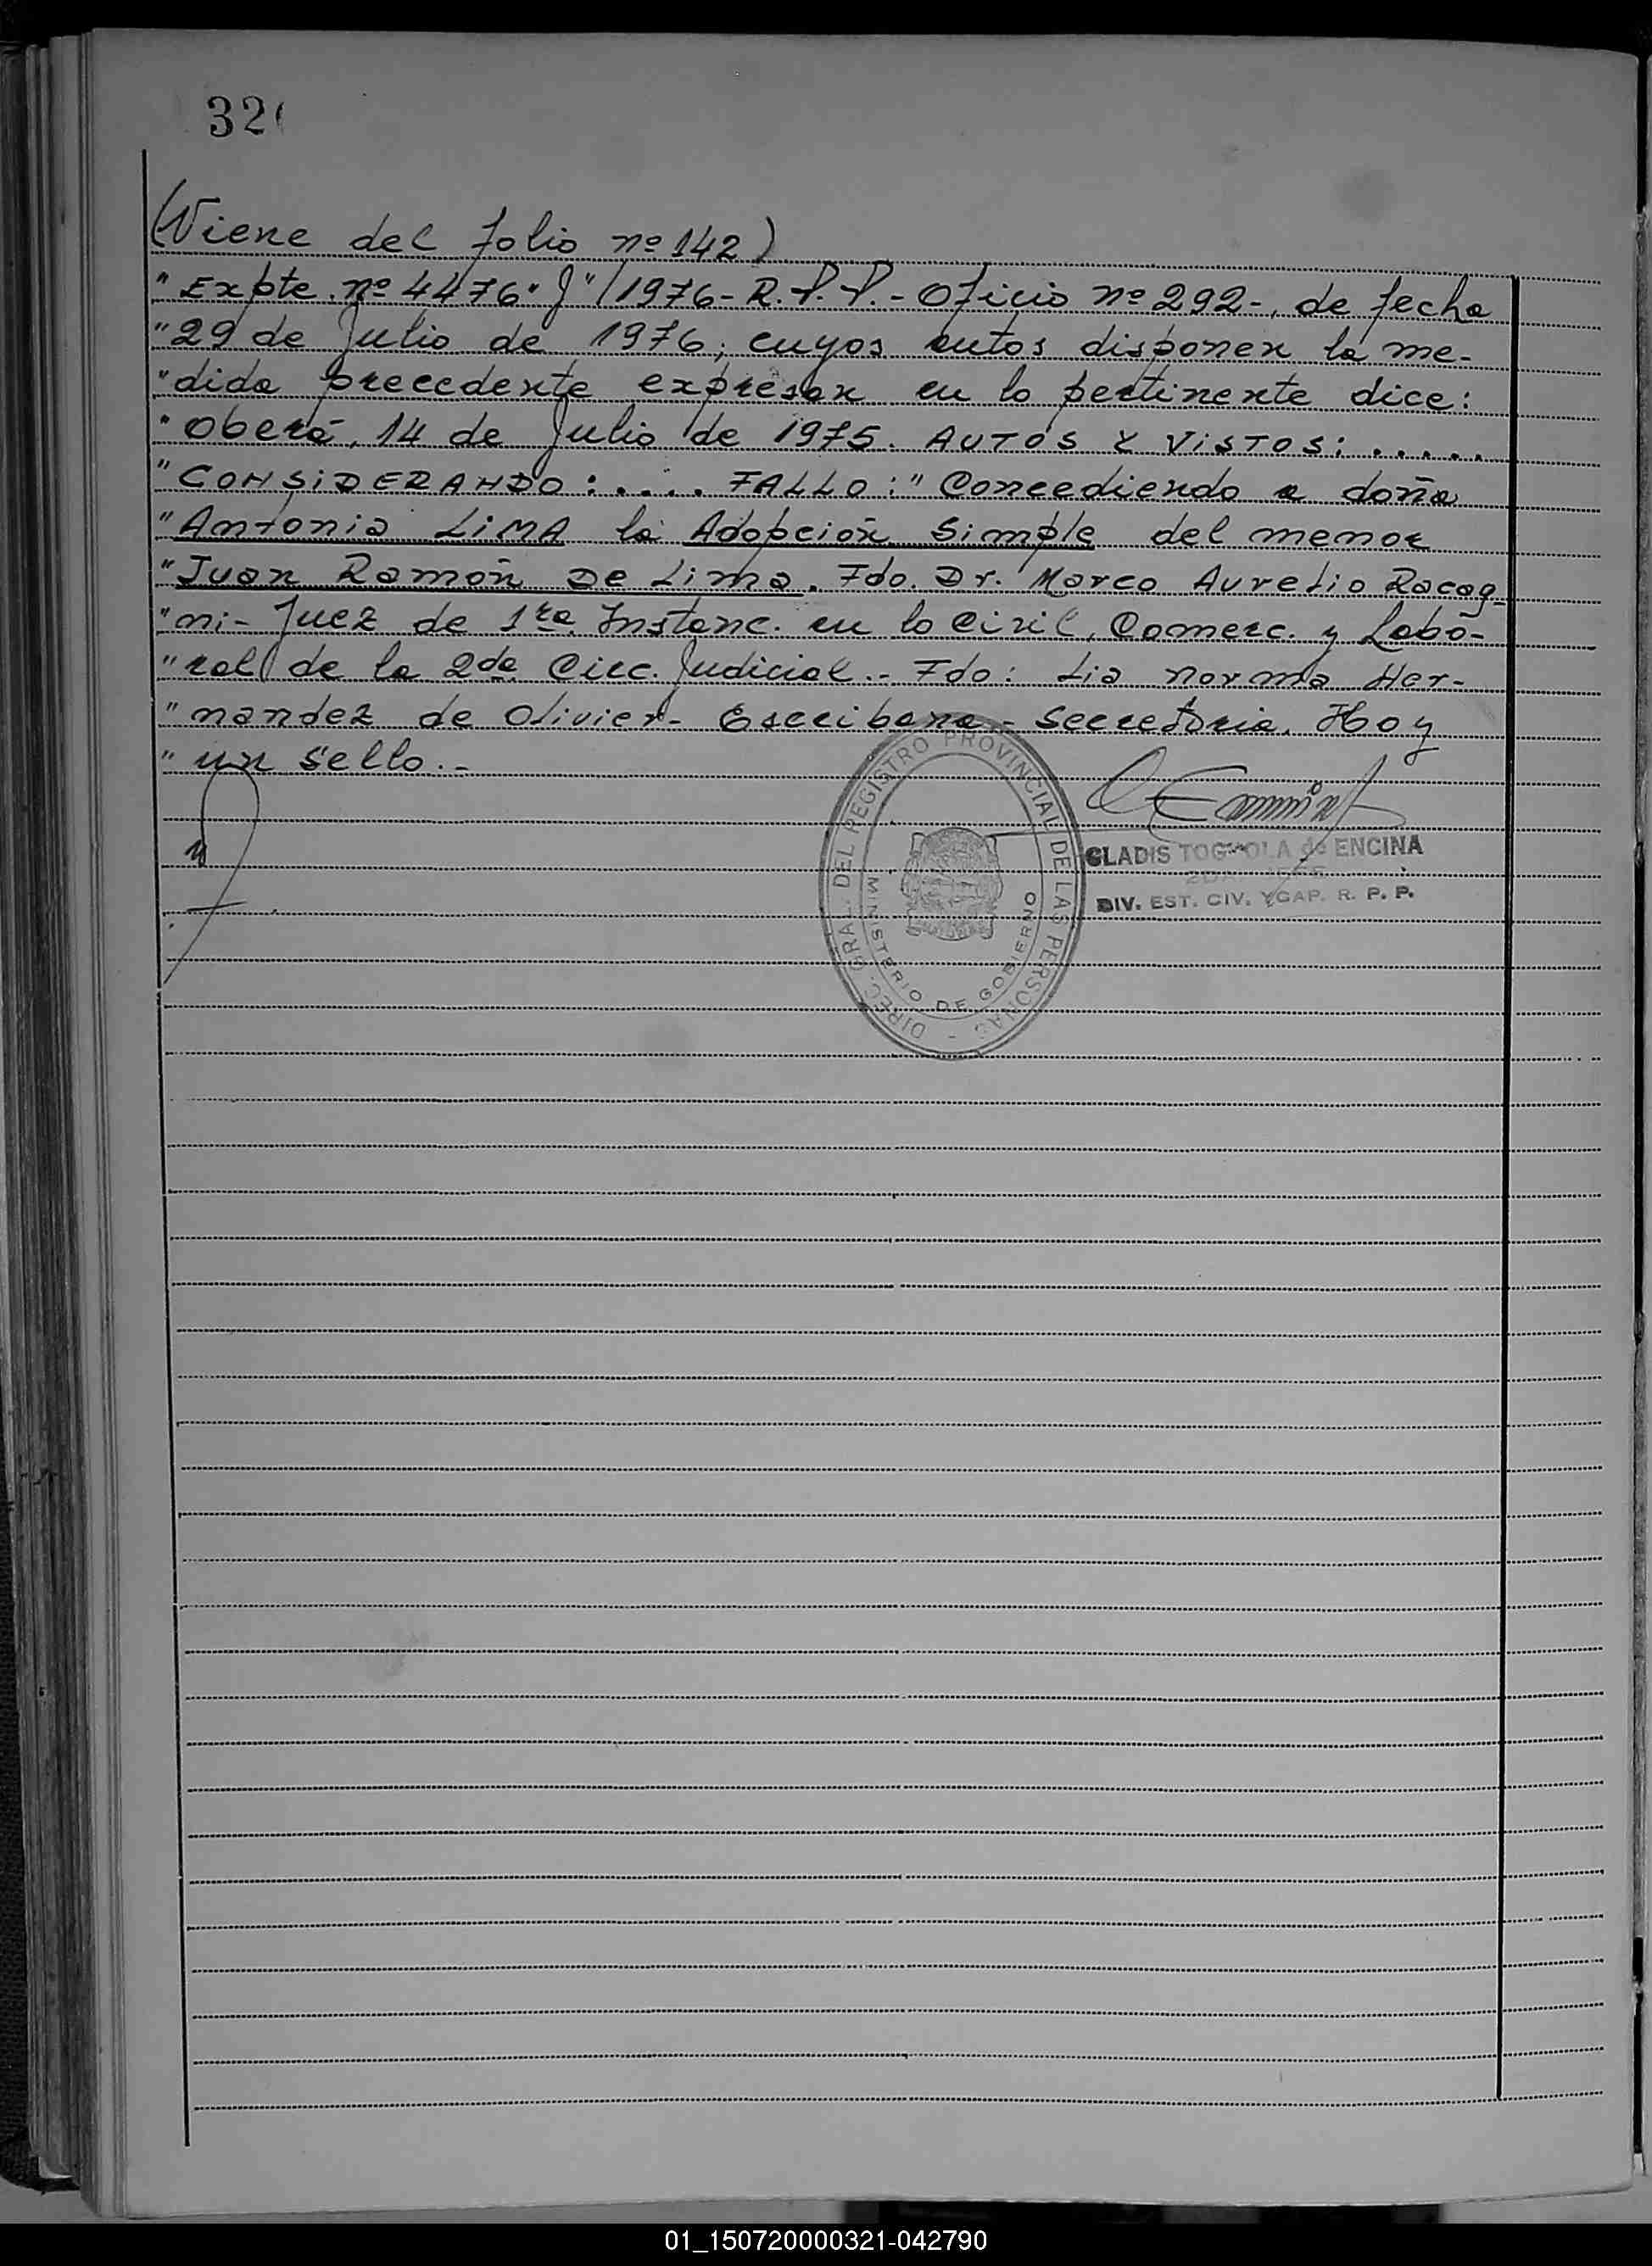 32
(Viene del folio nº 142)
"Expte. nº 4476 "J"/1976- R.P.P.- Oficio nº 292-, de fecha
"29 de Julio de 1976; cuyos autos disponen la me-
"dida precedente expresan en lo pertinente dice:
"Oberá, 14 de Julio de 1975. AUTOS Y VISTOS: .....
"CONSIDERANDO: .... FALLO: "Concediendo a doña
"Antonia LIMA la Adopción Simple del menor
"Juan Ramón De Lima. Fdo. Dr. Marco Aurelio Racag-
"ni- Juez de 1ra. Instanc. en lo Civil, Comerc. y Labo-
"ral de la 2da. Circ. Judicial.- Fdo: Lia Norma Her-
"nandez de Olivier- Escribana- Secretaria. Hay
"un sello.-
DIREC. GRAL. DEL REGISTRO PROVINCIAL DE LAS PERSONAS -
MINISTERIO DE GOBIERNO
GLADIS de ENCINA
DIV. EST. CIV. Y CAP. R. P. P.
01_150720000321-042790